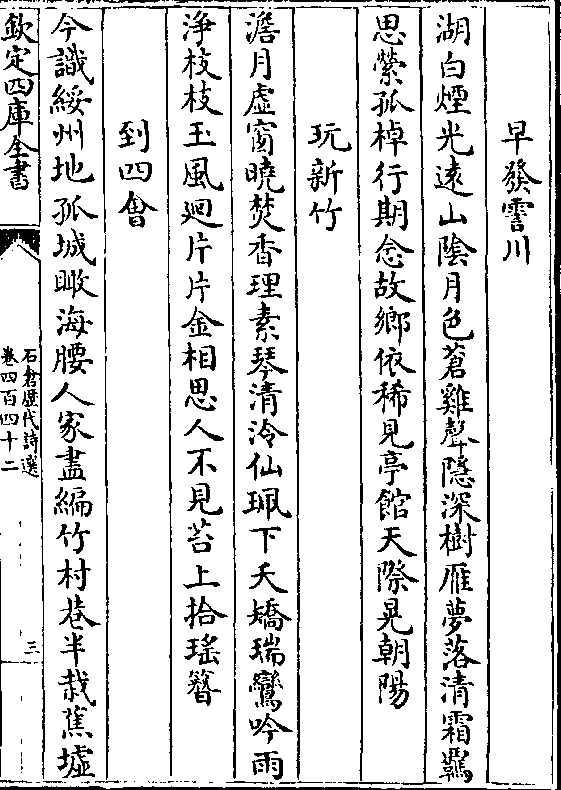 早發霅川
湖白煙光遠山隂月色蒼雞聲隱深樹雁夢落清霜羈
思縈孤棹行期念故鄉依稀見亭館天際晃朝陽
玩新竹
澹月虛窗曉焚香理素琴清泠仙珮下夭矯瑞鸞吟雨
淨枝枝玉風廻片片金相思人不見苔上拾瑤簪
到四㑹
今識綏州地孤城瞰海腰人家盡編竹村巷半栽蕉墟
欽定四庫全書
石倉歴代詩選
卷四百四十二
三